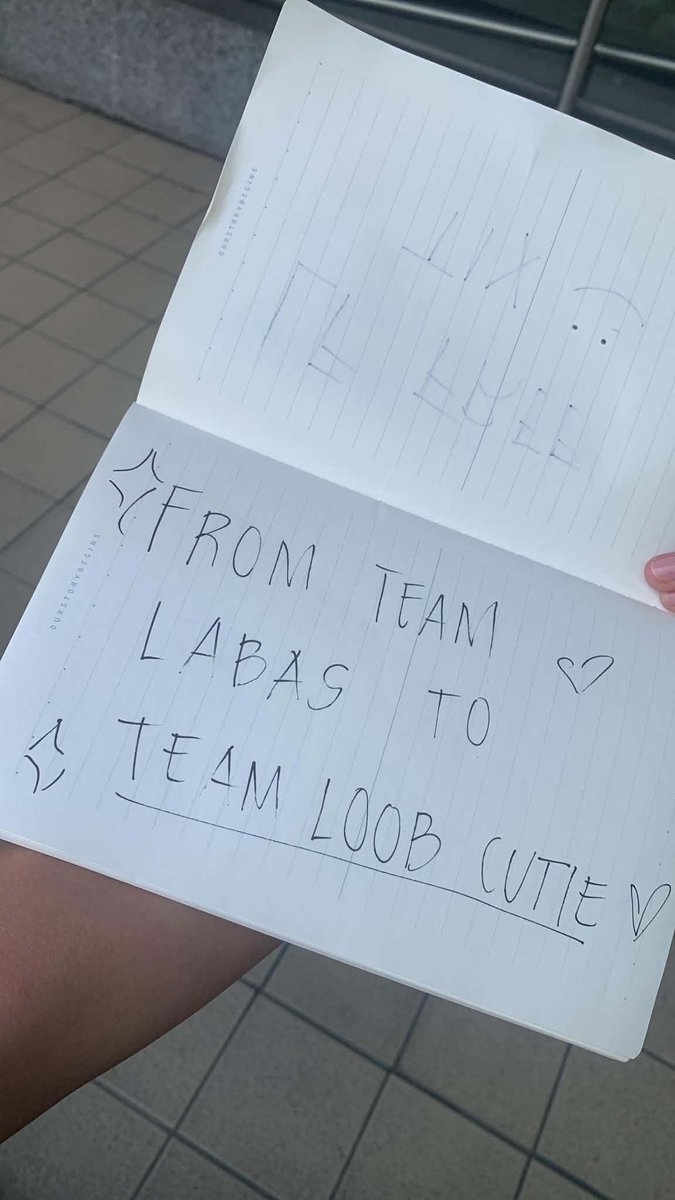 OURSTORYBEGINS
OURSTORYBEGINS
FROM TEAM
LABAS TO
TEAM LOOB CUTIE